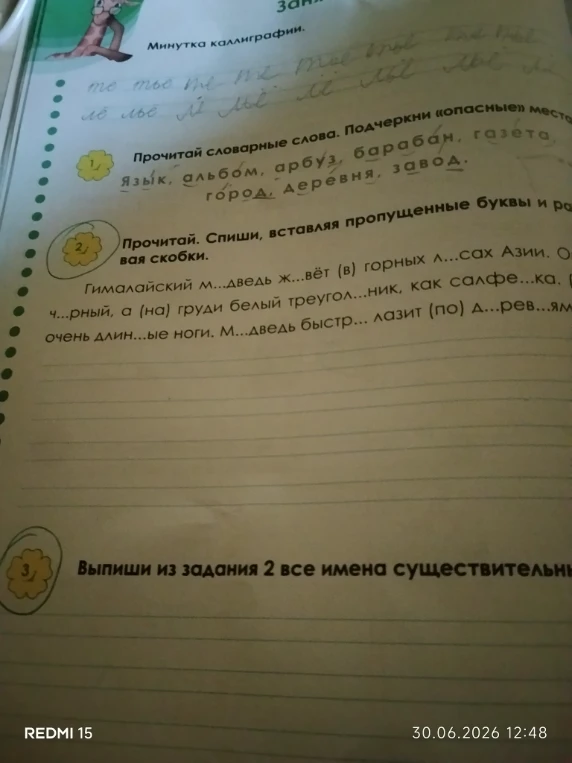 Заня
Минутка каллиграфии.
те тье те те тье тье
ле лье
1
Прочитай словарные слова. Подчеркни «опасные» места
Язык, альбом, арбуз, барабан, газета,
город, деревня, завод.
2
Прочитай. Спиши, вставляя пропущенные буквы и ра
вая скобки.
Гималайский м...дведь ж...вёт (в) горных л...сах Азии. О
ч...рный, а (на) груди белый треугол...ник, как салфе...ка.
очень длин...ые ноги. М...дведь быстр... лазит (по) д...рев...ям
3
Выпиши из задания 2 все имена существительны
REDMI 15
30.06.2026 12:48